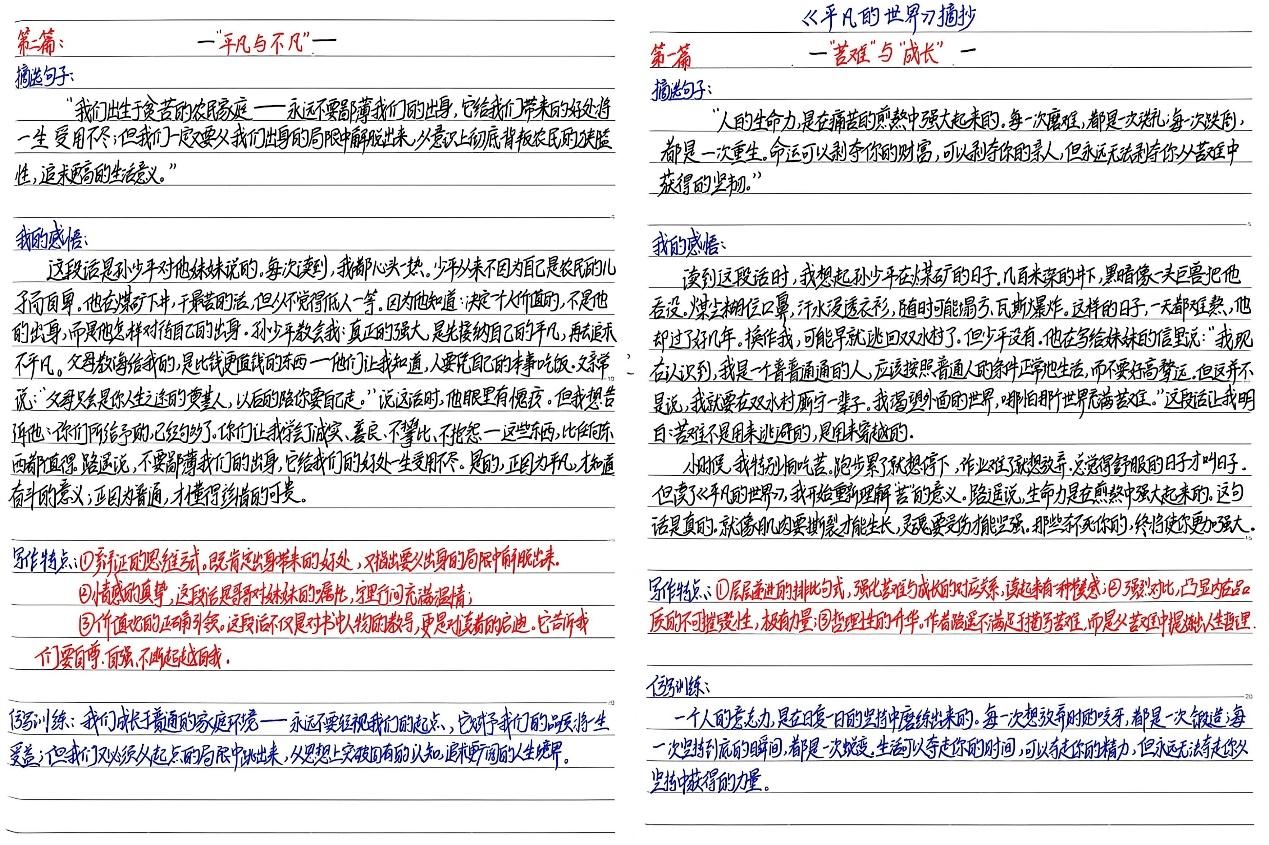 《平凡的世界》摘抄
第一篇 —“苦难”与“成长”—
摘选句子:
“人的生命力,是在痛苦的煎熬中强大起来的。每一次磨难,都是一次洗礼;每一次跌倒,
都是一次重生。命运可以剥夺你的财富,可以剥夺你的亲人,但永远无法剥夺你从苦难中
获得的坚韧。”
我的感悟:
读到这段话时,我想起孙少平在煤矿的日子。几百米深的井下,黑暗像一头巨兽把他
吞没。煤尘糊住口鼻,汗水浸透衣衫,随时可能塌方、瓦斯爆炸。这样的日子,一天都难熬,他
却过了好几年。换作我,可能早就逃回双水村了。但少平没有。他在写给妹妹的信里说:“我现
在认识到,我是一个普普通通的人,应该按照普通人的条件正常地生活,而不要好高骛远。但这并不
是说,我就要在双水村厮守一辈子。我渴望外面的世界,哪怕那个世界充满苦难。”这段话让我明
白:苦难不是用来逃避的,是用来穿越的.
小时候,我特别怕吃苦。跑步累了就想停下,作业难了就想放弃.总觉得舒服的日子才叫日子.
但读了《平凡的世界》,我开始重新理解“苦”的意义。路遥说,生命力是在煎熬中强大起来的。这句
话是真的。就像肌肉要撕裂才能生长,灵魂要受伤才能坚强。那些杀不死你的,终将使你更加强大.
写作特点:①层层递进的排比句式,强化苦难与成长的对应关系,读起来有一种慢感;②强烈对比,凸显内在品
质的不可摧毁性,极有力量;③哲理性的升华。作者路遥不满足于描写苦难,而是从苦难中提炼出人生哲理.
仿写训练:
一个人的意志力,是在日复一日的坚持中磨练出来的。每一次想放弃时的咬牙,都是一次锻造;每
一次坚持到底的瞬间,都是一次蜕变.生活可以夺走你的时间,可以夺走你的精力,但永远无法夺走你从
坚持中获得的力量。
第二篇: —“平凡与不凡”—
摘选句子:
“我们出生于贫苦的农民家庭——永远不要鄙薄我们的出身,它给我们带来的好处将
一生受用不尽;但我们一定又要从我们出身的局限中解脱出来,从意识上彻底背叛农民的狭隘
性,追求更高的生活意义。”
我的感悟:
这段话是孙少平对他妹妹说的。每次读到,我都心头一热。少平从来不因为自己是农民的儿
子而自卑。他在煤矿下井,干最苦的活,但从不觉得低人一等。因为他知道:决定个人价值的,不是他
的出身,而是他怎样对待自己的出身.孙少平教会我:真正的强大,是先接纳自己的平凡,再去追求
不平凡。父母教海给我的,是比钱更值钱的东西—他们让我知道,人要凭自己的本事吃饭.父亲常
说:“父母只会是你人生之途的奠基人,以后的路你要自己走。”说这话时,他眼里有愧疚。但我想告
诉他:你们所给予的,已经够了。你们让我学会了诚实、善良、不攀比、不抱怨—这些东西,比任何东
西都值得.路遥说,不要鄙薄我们的出身,它给我们的好处一生受用不尽。是的,正因为平凡,才知道
奋斗的意义;正因为普通,才懂得珍惜的可贵。
写作特点:①辩证的思维方式。既肯定出身带来的好处,又指出要从出身的局限中解脱出来.
②情感的真挚,这段话是哥哥对妹妹的嘱托,字里行间充满温情;
③价值观的正确引领。这段话不仅是对书中人物的教导,更是对读者的启迪。它告诉我
们要自尊.自强.不断超越自我.
仿写训练:我们成长于普通的家庭环境——永远不要轻视我们的起点,它赋予我们的品质将一生
受益;但我们又必须从起点的局限中跳出来,从思想上突破固有的认知,追求更广阔的人生境界。